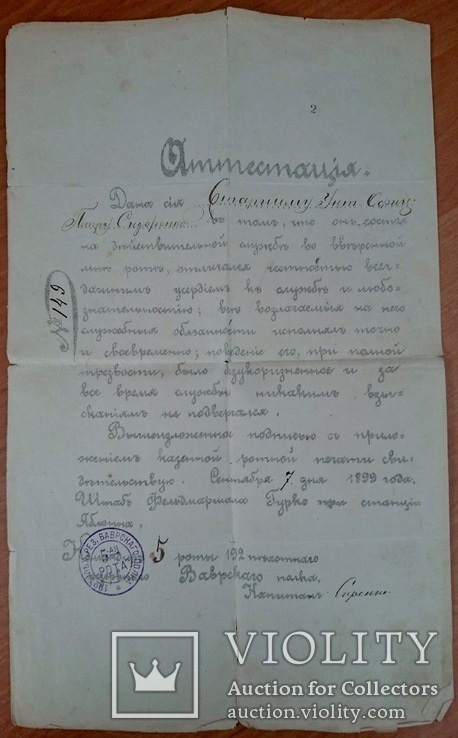 2
Аттестація.
Дана сія Старшему Унт. Офиц.
Петру Сидоренко въ томъ, что онъ состоя
на дѣйствительной службѣ во ввѣренной
мнѣ ротѣ, отличался честностью всег-
дашнимъ усердіемъ къ службѣ и любо-
знательностію; всѣ возлагаемыя на него
служебныя обязанности исполнялъ точно
и своевременно; поведеніе его, при полной
трезвости, было безукоризненное и за
все время службы никакимъ взы-
сканіямъ не подвергался.
№ 149
Вышеизложенное подписью съ прило-
женіемъ казенной ротной печати сви-
дѣтельствую. Сентября 7 дня 1899 года.
Штабъ Фельдмаршала Гурко при станціи
Яблонна.
5 роты 192 пѣхотнаго
Ваврскаго полка.
Капитанъ
5-АЯ
РОТА
VIOLITY
Auction for Collectors
auction.violity.com